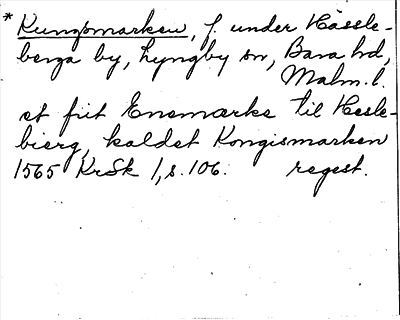 * Kungsmarken, f. under Hässle-
berga by, Lyngby sn, Bara hd,
Malm. l.
et frit Ensmarke til Hesle-
bierg, kaldet Kongismarken
1565 KrSk 1, s. 106. regest.